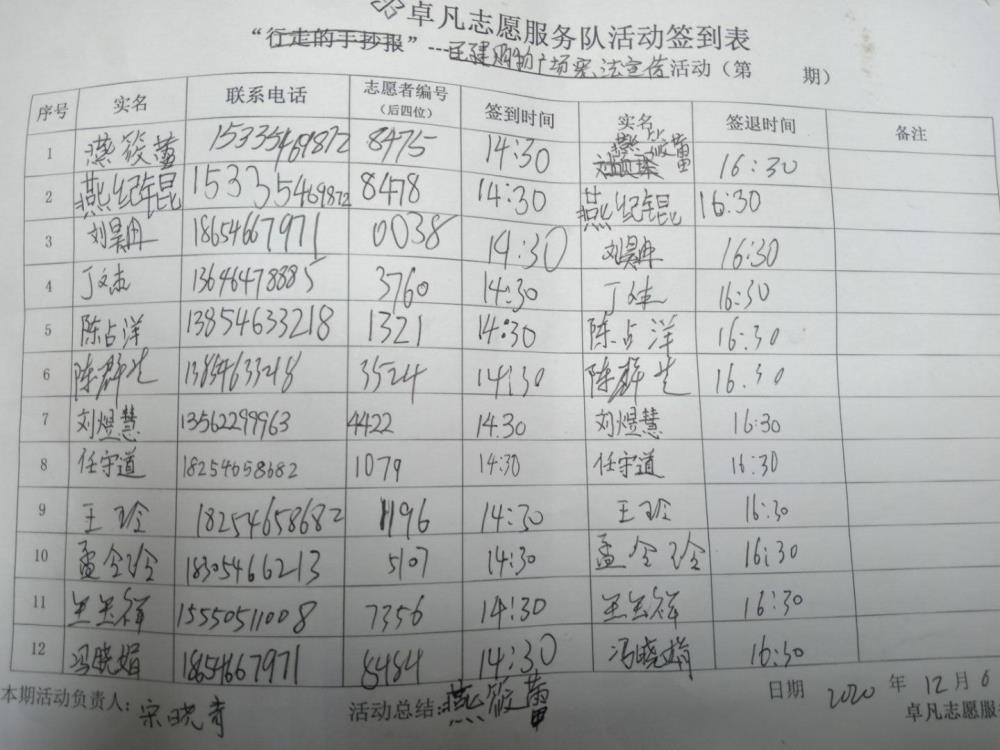 卓凡志愿服务队活动签到表
“行走的手抄报”---王建购物广场宪法宣传活动（第 期）
序号 实名 联系电话 志愿者编号（后四位） 签到时间 实名 签退时间 备注
1 燕筱蕾 15335469872 8475 14:30 燕筱蕾 16:30
2 燕纪锟 15335469872 8478 14:30 燕纪锟 16:30
3 刘昊冉 18654667971 0038 14:30 刘昊冉 16:30
4 丁文杰 13646478885 3760 14:30 丁文杰 16:30
5 陈占洋 13854633218 1321 14:30 陈占洋 16:30
6 陈群先 13854633218 3524 14:30 陈群先 16:30
7 刘煜慧 13562299963 4422 14:30 刘煜慧 16:30
8 任守道 18254658682 1079 14:30 任守道 16:30
9 王玲 18254658682 1196 14:30 王玲 16:30
10 孟令玲 18305466213 5107 14:30 孟令玲 16:30
11 王玉祥 15550511008 7356 14:30 王玉祥 16:30
12 冯晓娟 18654667971 8484 14:30 冯晓娟 16:30
本期活动负责人：宋晓奇 活动总结：燕筱蕾 日期 2020 年 12 月 6
卓凡志愿服